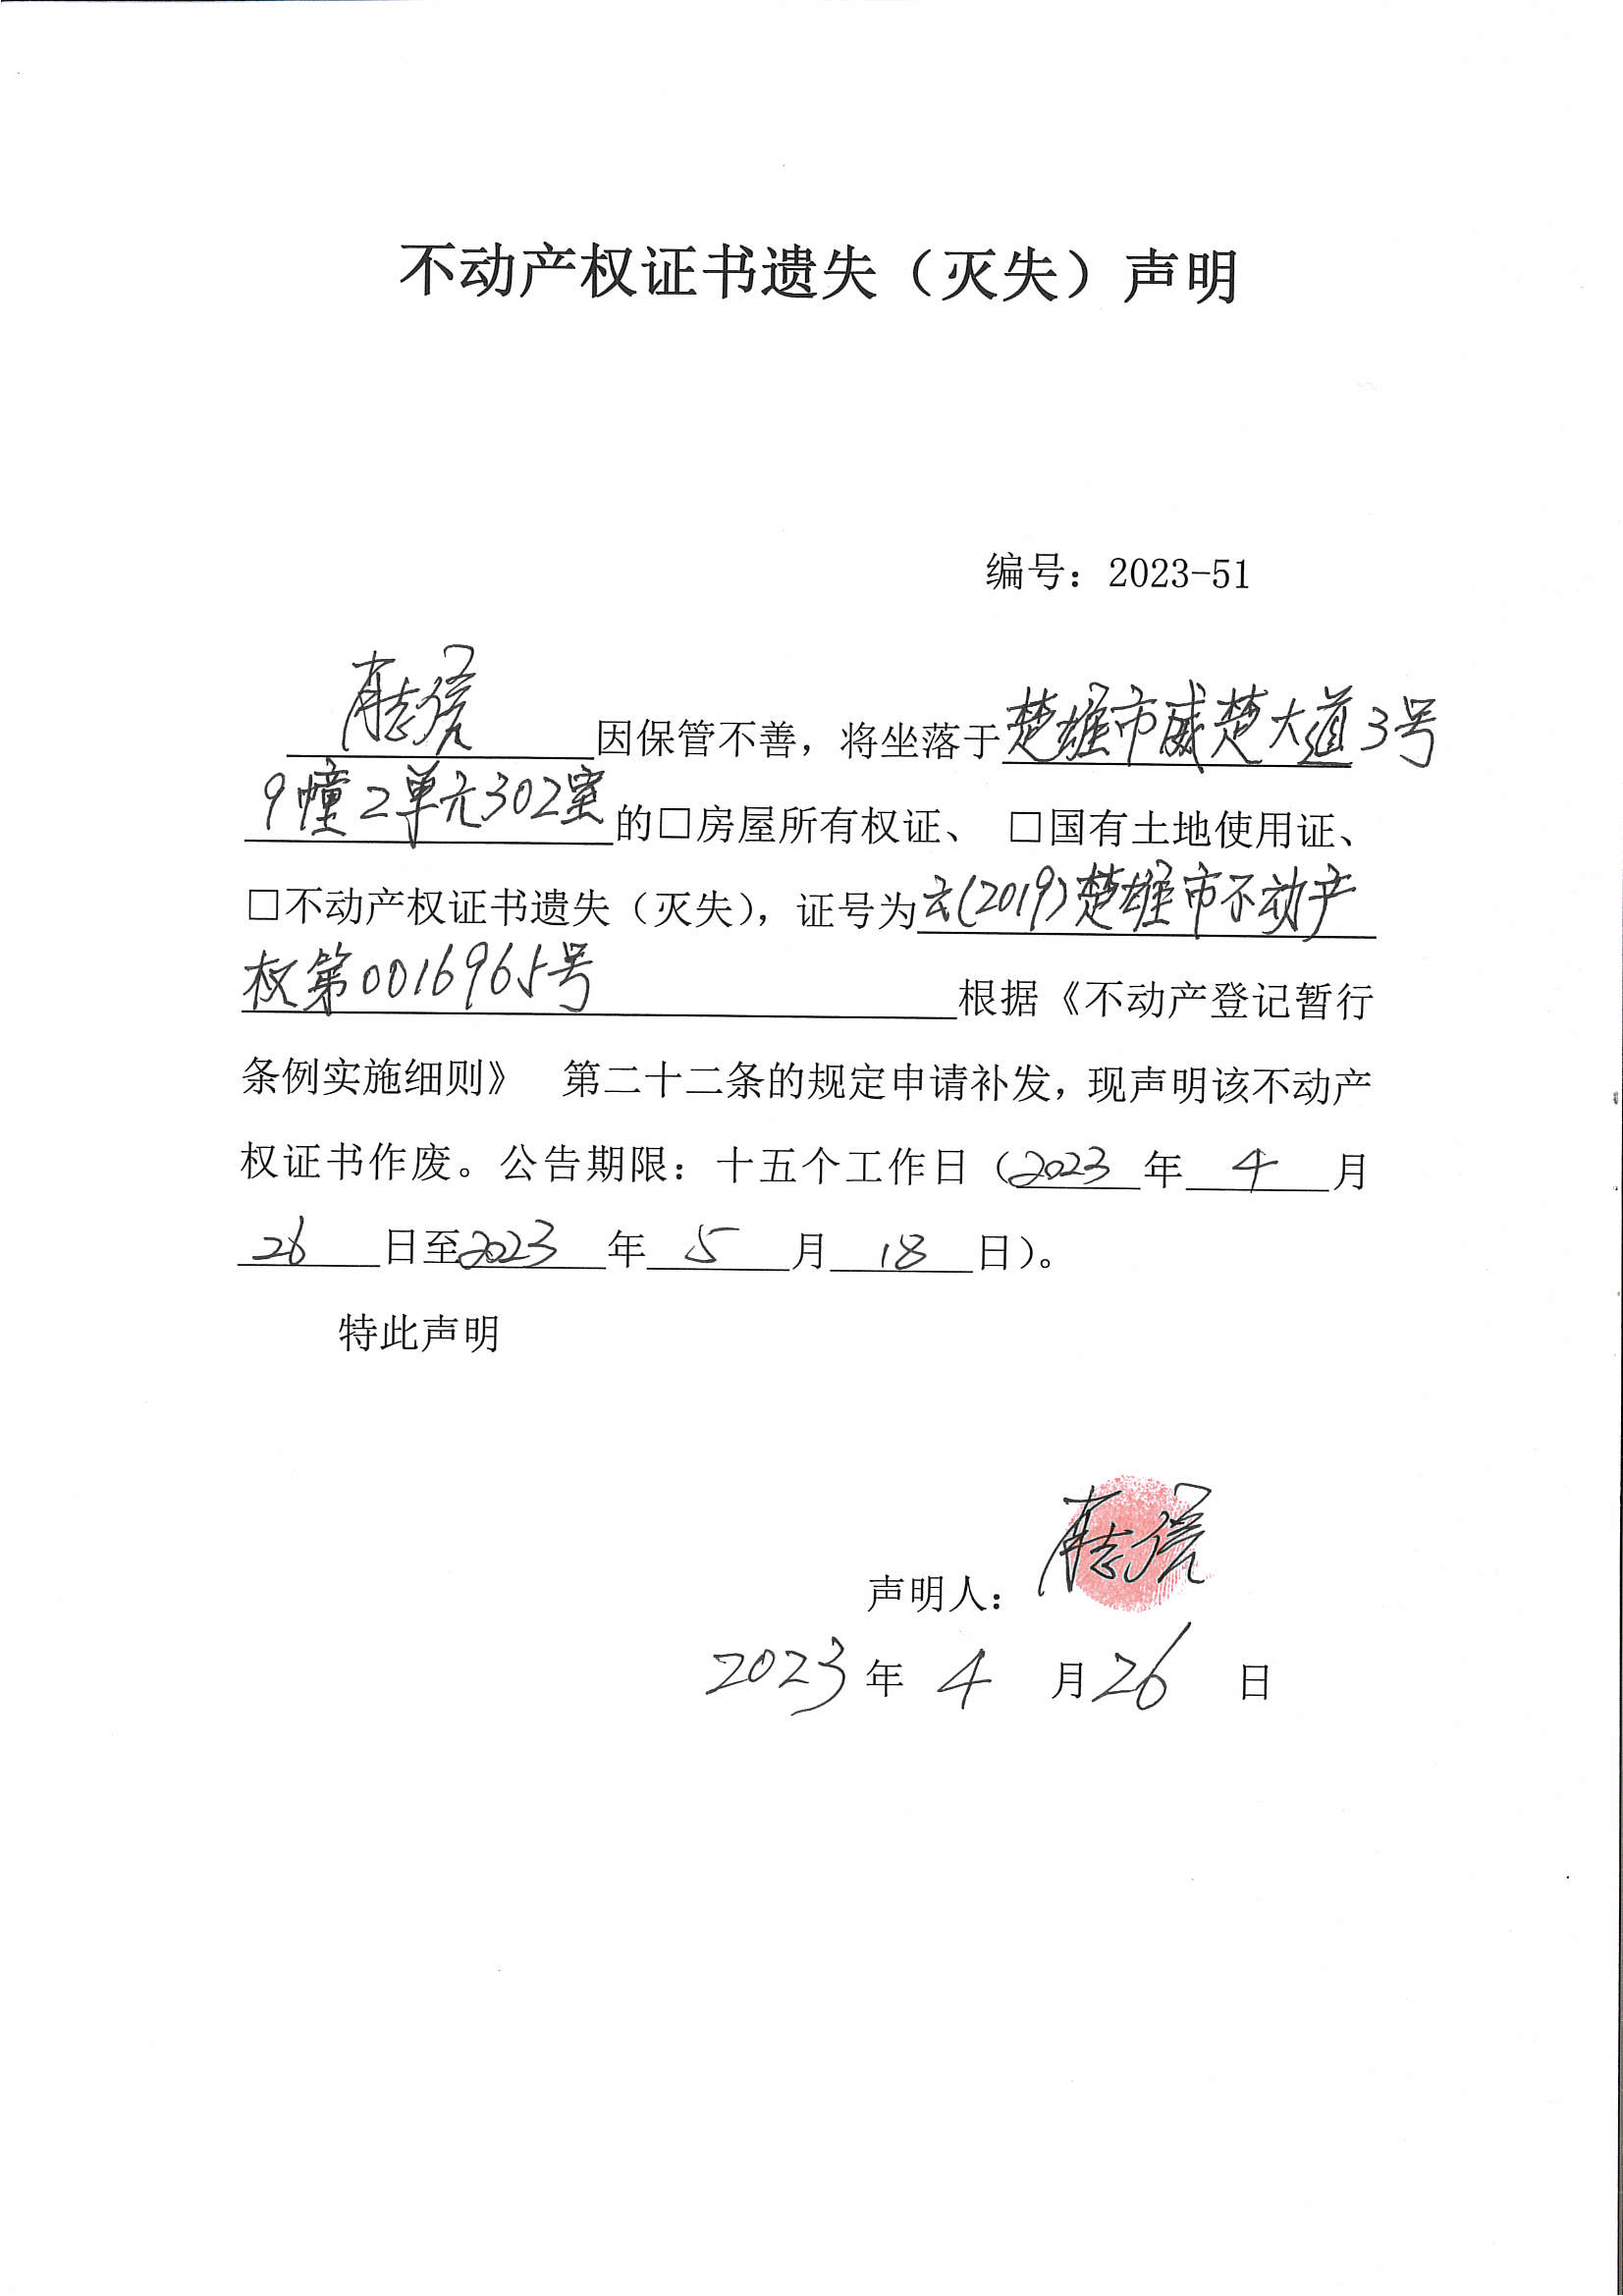 不动产权证书遗失（灭失）声明
编号：2023-51
因保管不善，将坐落于楚雄市威楚大道3号
9幢2单元302室的□房屋所有权证、 □国有土地使用证、
□不动产权证书遗失（灭失），证号为云(2019)楚雄市不动产
权第0016965号根据《不动产登记暂行
条例实施细则》 第二十二条的规定申请补发，现声明该不动产
权证书作废。公告期限：十五个工作日（2023年4月
26日至2023年5月18日）。
特此声明
声明人：
2023年4月26日